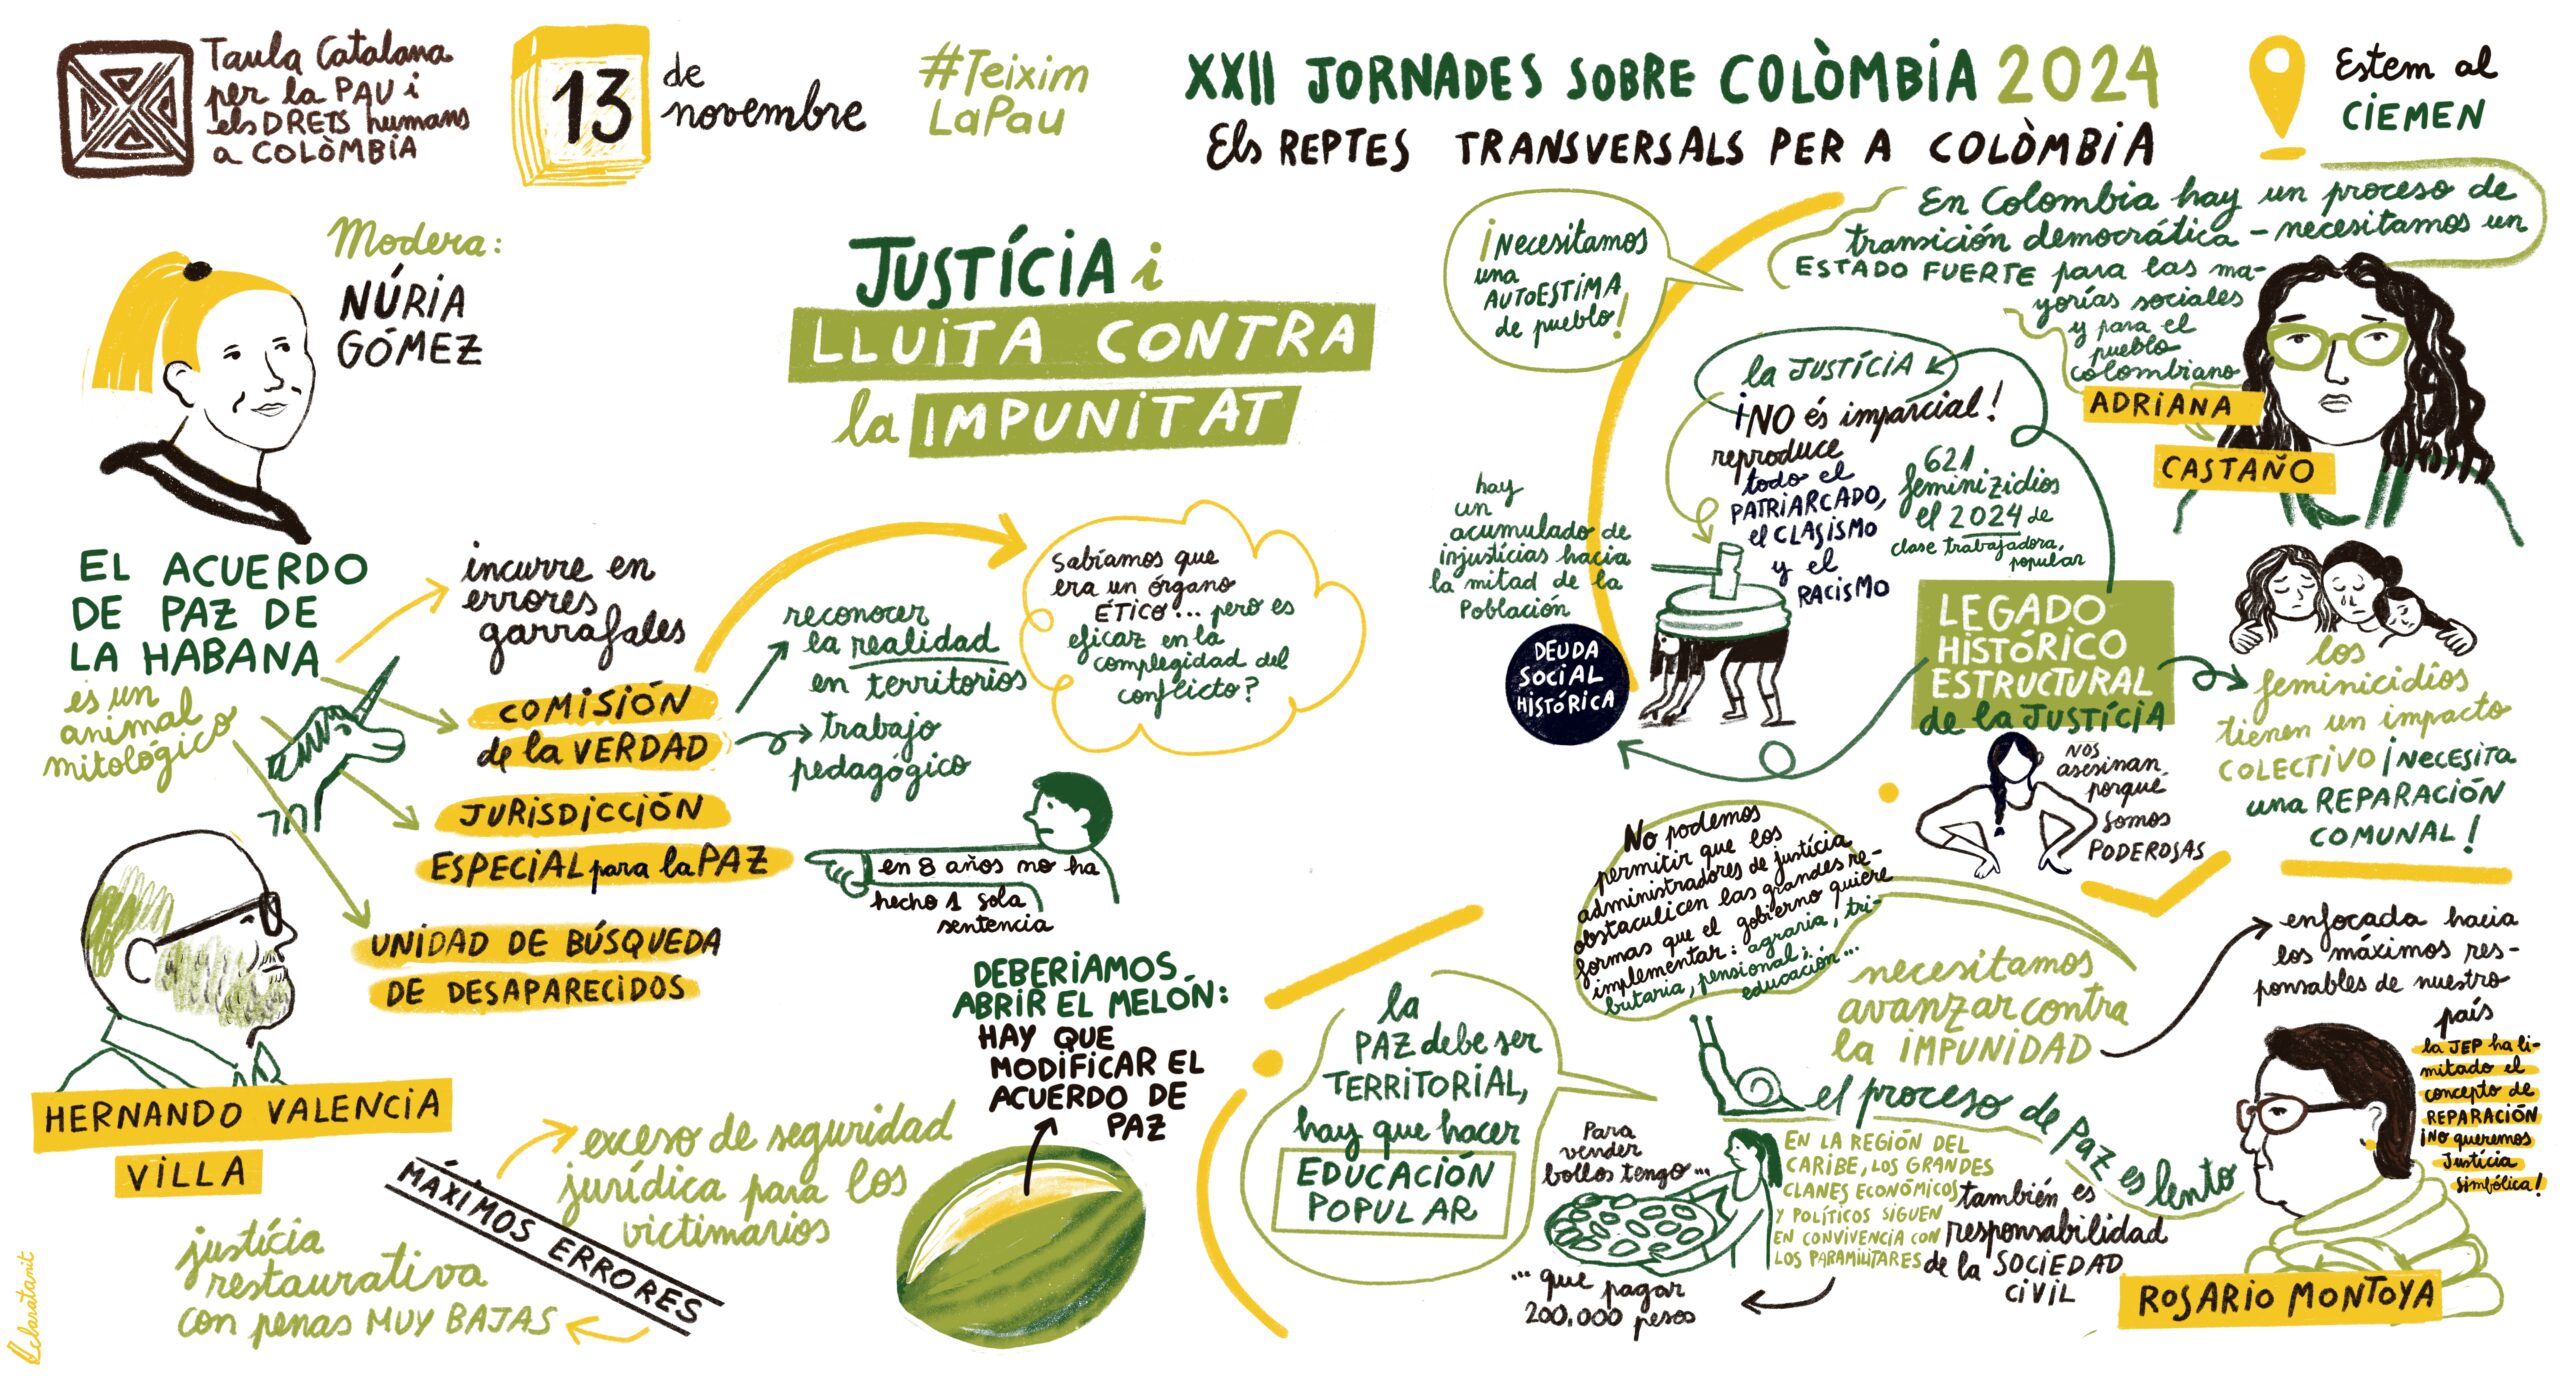 Taula Catalana
per la PAU i
els DRETS humans
a COLÒMBIA
13
de
novembre
#Teixim
LaPau
XXII JORNADES SOBRE COLÒMBIA 2024
Els REPTES TRANSVERSALS PER A COLÒMBIA
Estem al
CIEMEN
Modera:
NÚRIA
GÓMEZ
JUSTÍCIA i
LLUITA CONTRA
la IMPUNITAT
EL ACUERDO
DE PAZ DE
LA HABANA
es un
animal
mitológico
incurre en
errores
garrafales
COMISIÓN
de la VERDAD
reconocer
la realidad
en territorios
trabajo
pedagógico
Sabíamos que
era un órgano
ÉTICO... pero es
eficaz en la
complegidad del
conflicto?
JURISDICCIÓN
ESPECIAL para la PAZ
en 8 años no ha
hecho 1 sola
sentencia
UNIDAD DE BÚSQUEDA
DE DESAPARECIDOS
HERNANDO VALENCIA
VILLA
MÁXIMOS ERRORES
exceso de seguridad
jurídica para los
victimarios
justícia
restaurativa
con penas MUY BAJAS
DEBERIAMOS
ABRIR EL MELÓN:
HAY QUE
MODIFICAR EL
ACUERDO DE
PAZ
¡Necesitamos
una
AUTOESTIMA
de pueblo!
En Colombia hay un proceso de
transición democrática - necesitamos un
ESTADO FUERTE para las ma-
yorías sociales
y para el
pueblo
colombiano
ADRIANA
CASTAÑO
la JUSTÍCIA
¡NO és imparcial!
reproduce
todo el
PATRIARCADO,
el CLASISMO
y el
RACISMO
621
feminizidios
el 2024 de
clase trabajadora,
popular
hay
un
acumulado de
injustícias hacia
la mitad de la
Población
DEUDA
SOCIAL
HISTÓRICA
LEGADO
HISTÓRICO
ESTRUCTURAL
de la JUSTÍCIA
los
feminicidios
tienen un impacto
COLECTIVO ¡NECESITA
una REPARACIÓN
COMUNAL!
Nos
asesinan
porqué
Somos
PODEROSAS
No podemos
permitir que los
administradores de justícia
obstaculicen las grandes re-
formas que el gobierno quiere
implementar: agraria, tri-
butaria, pensional,
educación...
necesitamos
avanzar contra
la IMPUNIDAD
enfocada hacia
los máximos res-
ponsables de nuestro
país
la JEP ha li-
mitado el
concepto de
REPARACIÓN
¡No queremos
Justícia
simbólica!
el proceso de Paz es lento
la
PAZ debe ser
TERRITORIAL,
hay que hacer
EDUCACIÓN
POPULAR
Para
vender
bollos tengo...
... que pagar
200.000 pesos
EN LA REGIÓN DEL
CARIBE, LOS GRANDES
CLANES ECONÓMICOS
Y POLÍTICOS SIGUEN
EN CONVIVENCIA CON
LOS PARAMILITARES
también es
responsabilidad
de la SOCIEDAD
CIVIL
ROSARIO MONTOYA
@claratanit